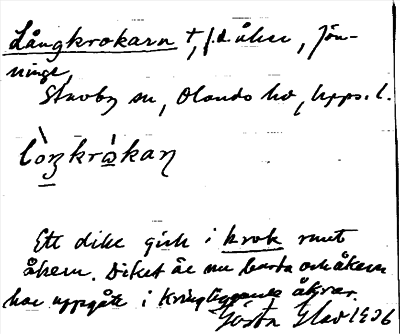 Långkrokarn †, f.d. åker, Jön-
ninge,
Stavby sn, Olands hd, Upps. l.
lòŋkrɑ̀kaɳ
Ett dike gick i krok runt
åkern. Diket är nu borta och åkern
har uppgått i kringliggande åkrar.
Gösta 1936